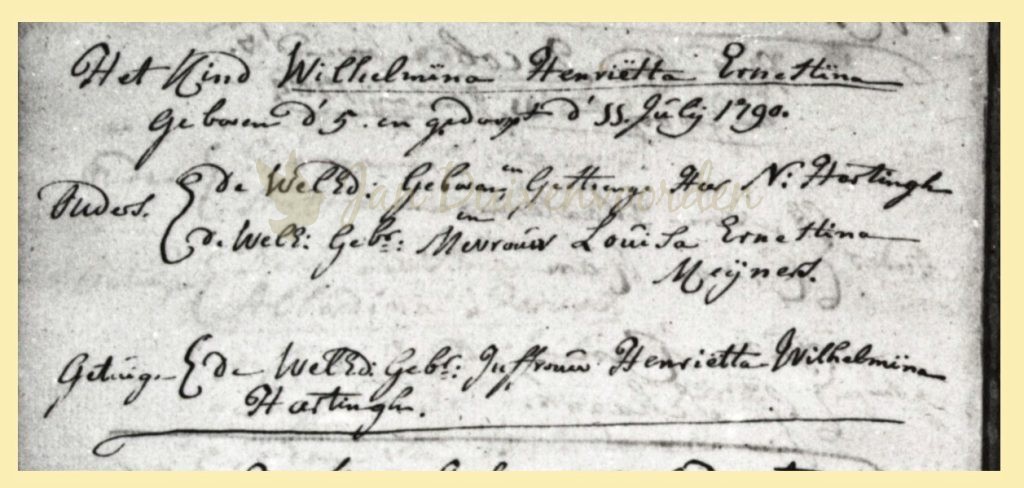 Het Kind Wilhelmina Henriëtta Ernestina
Geboren d' 5. en gedoopt d' 11. July 1790.
Ouders. de WelEd: Geboren en Heer N: Hartingh
de WelE: Gebr: Mevrouw Louisa Ernestina
Meijners.
Getuige de WelEd: Gebr: Juffrouw Henriëtta Wilhelmina
Hartingh.